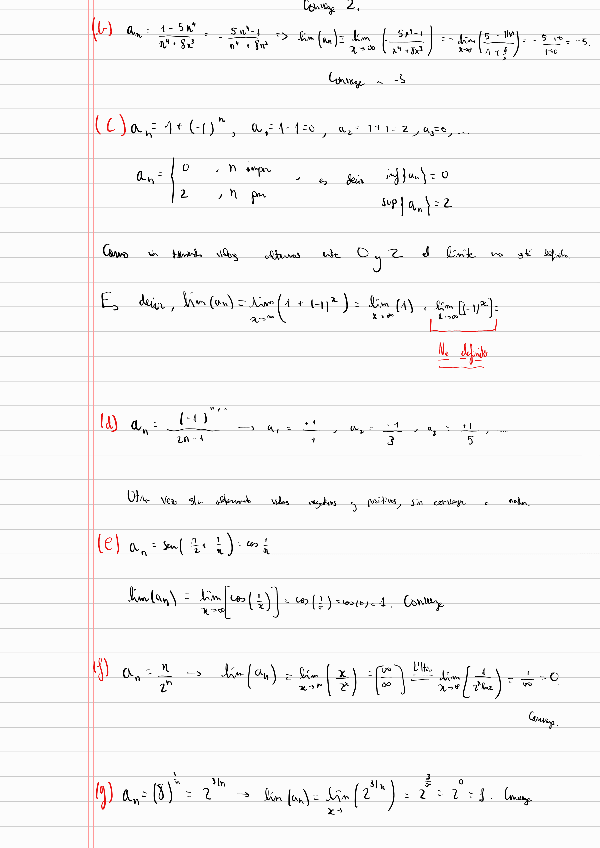 Converge 2.
(b) an = (1 - 5n⁴)/(n⁴ + 8n³) = - (5n⁴ - 1)/(n⁴ + 8n³) => lim(an) = lim x→∞ (- (5x⁴ - 1)/(x⁴ + 8x³)) = - lim x→∞ = -5.
Converge -5
(C) an = 1 + (-1)ⁿ, a₁ = 1 - 1 = 0, a₂ = 1 + 1 = 2, a₃ = 0, ...
an = { 0 , n impar , es decir inf{an} = 0
2 , n par sup{an} = 2
Como valores 0 y 2 el límite no está
Es decir, lim(an) = lim x→∞ (1 + (-1)ˣ) = lim x→∞ (1) + lim x→∞ [(-1)ˣ] =
No definido
(d) an = (-1)ⁿ⁺¹/(2n - 1) → a₁ = +1/1, a₂ = -1/3, a₃ = +1/5, ...
Otra vez valores negativos y positivos, sin converger a nada.
(e) an = sen(π/2 + 1/n) = cos 1/n
lim(an) = lim x→∞ [cos(1/x)] = = cos(0) = 1. Converge
(f) an = n/2ⁿ → lim(an) = lim x→∞ (x/2ˣ) = [∞/∞] L'Ho = lim x→∞ (1/(2ˣ ln2)) = 1/∞ = 0
Converge.
(g) an = (8)^(1/n) = 2^(3/n) → lim(an) = lim x→ (2^(3/x)) = = 2⁰ = 1. Converge